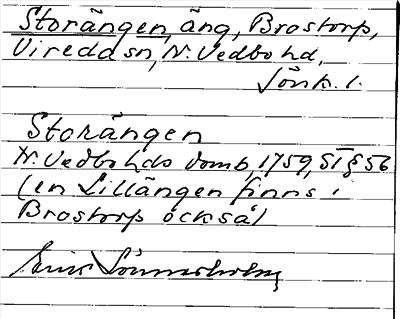 Storängen, äng, Brostorp,
Vireda sn, N. Vedbo hd,
Jönk. l.
Storängen
N. Vedbo hds domb, 1759, ST § 56
(en Lillängen finns i
Brostorp också)